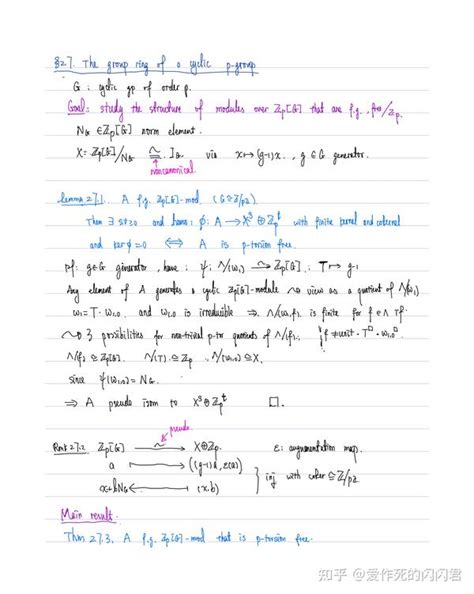 §27. The group ring of a cyclic p-group
G : cyclic gp of order p.
Goal: study the structure of modules over ℤp[G] that are f.g., free/ℤp.
N_G ∈ ℤp[G] norm element.
X = ℤp[G]/N_G ≃ I_G, via x ↦ (g-1)x, g ∈ G generator.
noncanonical
Lemma 27.1. A f.g. ℤp[G]-mod. (G≅ℤ/pℤ)
Then ∃ s,t≥0 and hom: φ: A → X^s ⊕ ℤp^t with finite kernel and cokernel
and ker φ = 0 ⟺ A is p-torsion free.
pf: g∈G generator, have: ψ: Λ/(ω₁) ≃ ℤp[G], T ↦ g-1
Any element of A generates a cyclic ℤp[G]-module ⇝ view as a quotient of Λ/(ω₁)
ω₁ = T · ω₁,₀, and ω₁,₀ is irreducible ⇒ Λ/(ω₁,f) is finite for f ∈ Λ
⇝ 3 possibilities for non-trivial p-tor quotients of Λ/(f), f = unit · T · ω₁,₀
Λ/(f) ≅ ℤp[G], Λ/(T) ≅ ℤp, Λ/(ω₁,₀) ≅ X,
since ψ(ω₁,₀) = N_G.
⇒ A pseudo isom to X^s ⊕ ℤp^t □.
pseudo
Rmk 27.2 ℤp[G] ⥲ X⊕ℤp. ε: augmentation map.
a ⟼ ((g-1)a, ε(a))
x+bN_G ⟻ (x,b) } inj with coker ≅ ℤ/pℤ
Main result.
Thm 27.3. A f.g. ℤp[G]-mod that is p-torsion free.
知乎 @爱作死的闪闪君